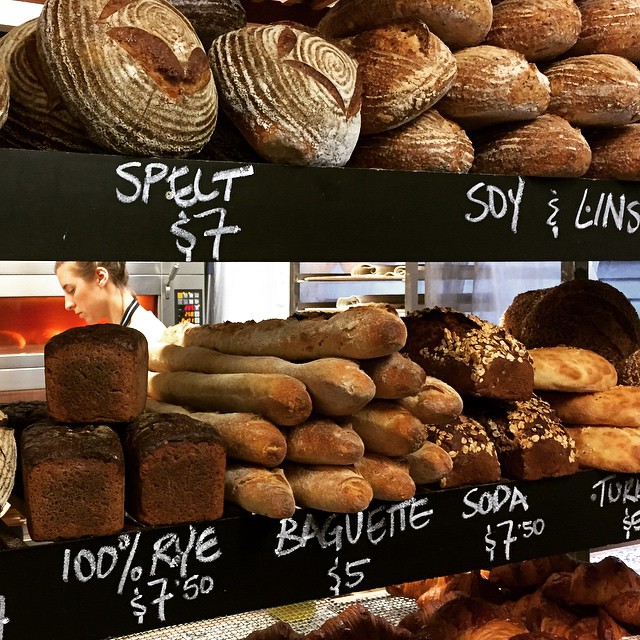 SPELT
$7
SOY & LINS
100% RYE
$7.50
BAGUETTE
$5
SODA
$7.50
TUR
$